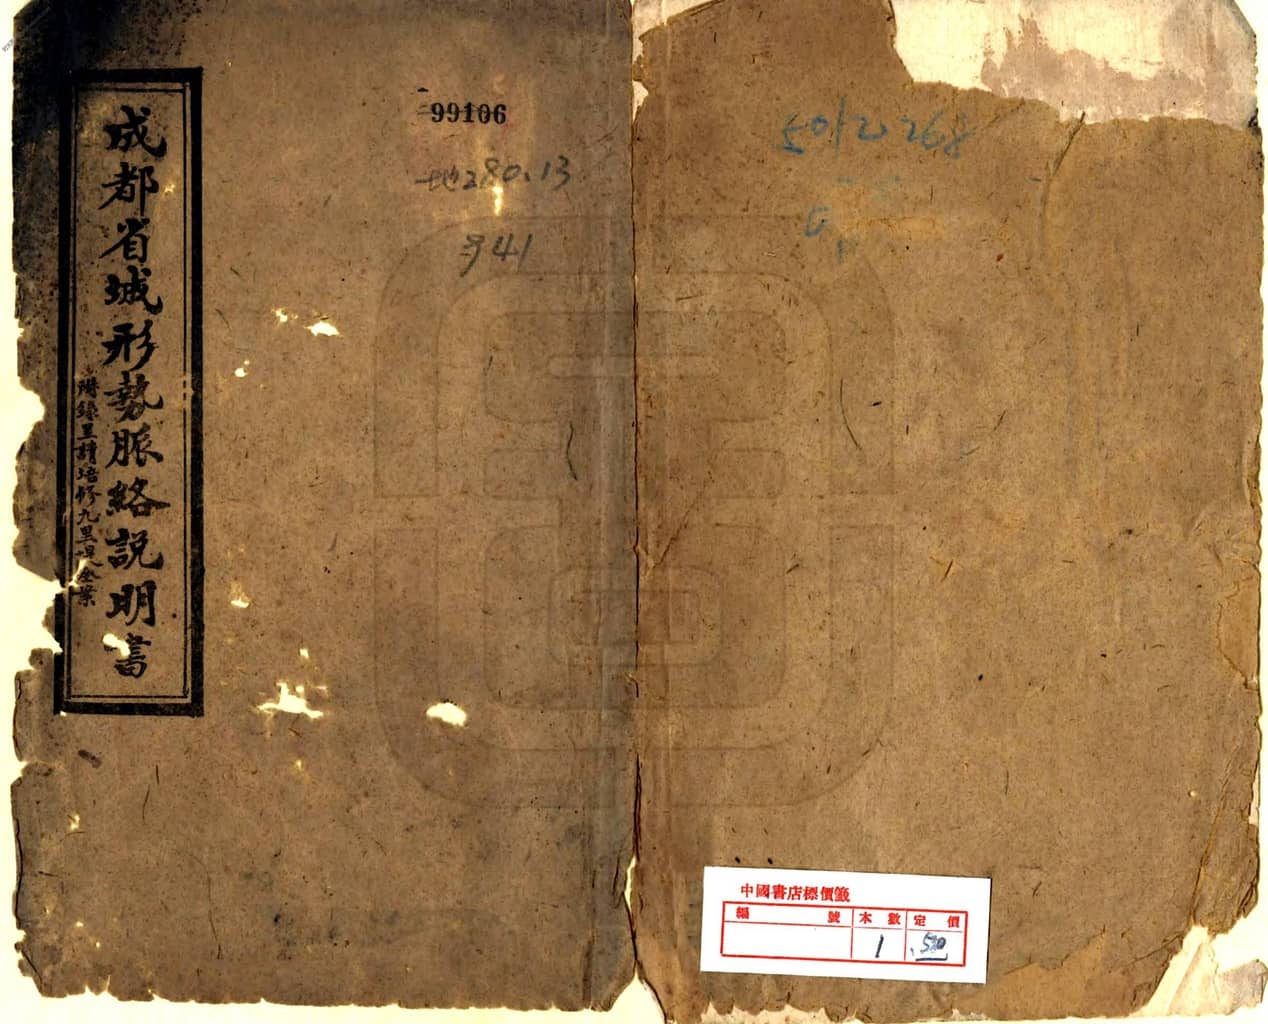 成都省城形勢脈絡説明書
附錄呈請培修九里堤全案
99106
地280.13
941
5012268
中國書店標價籤
編號 本數 定價
1 .50